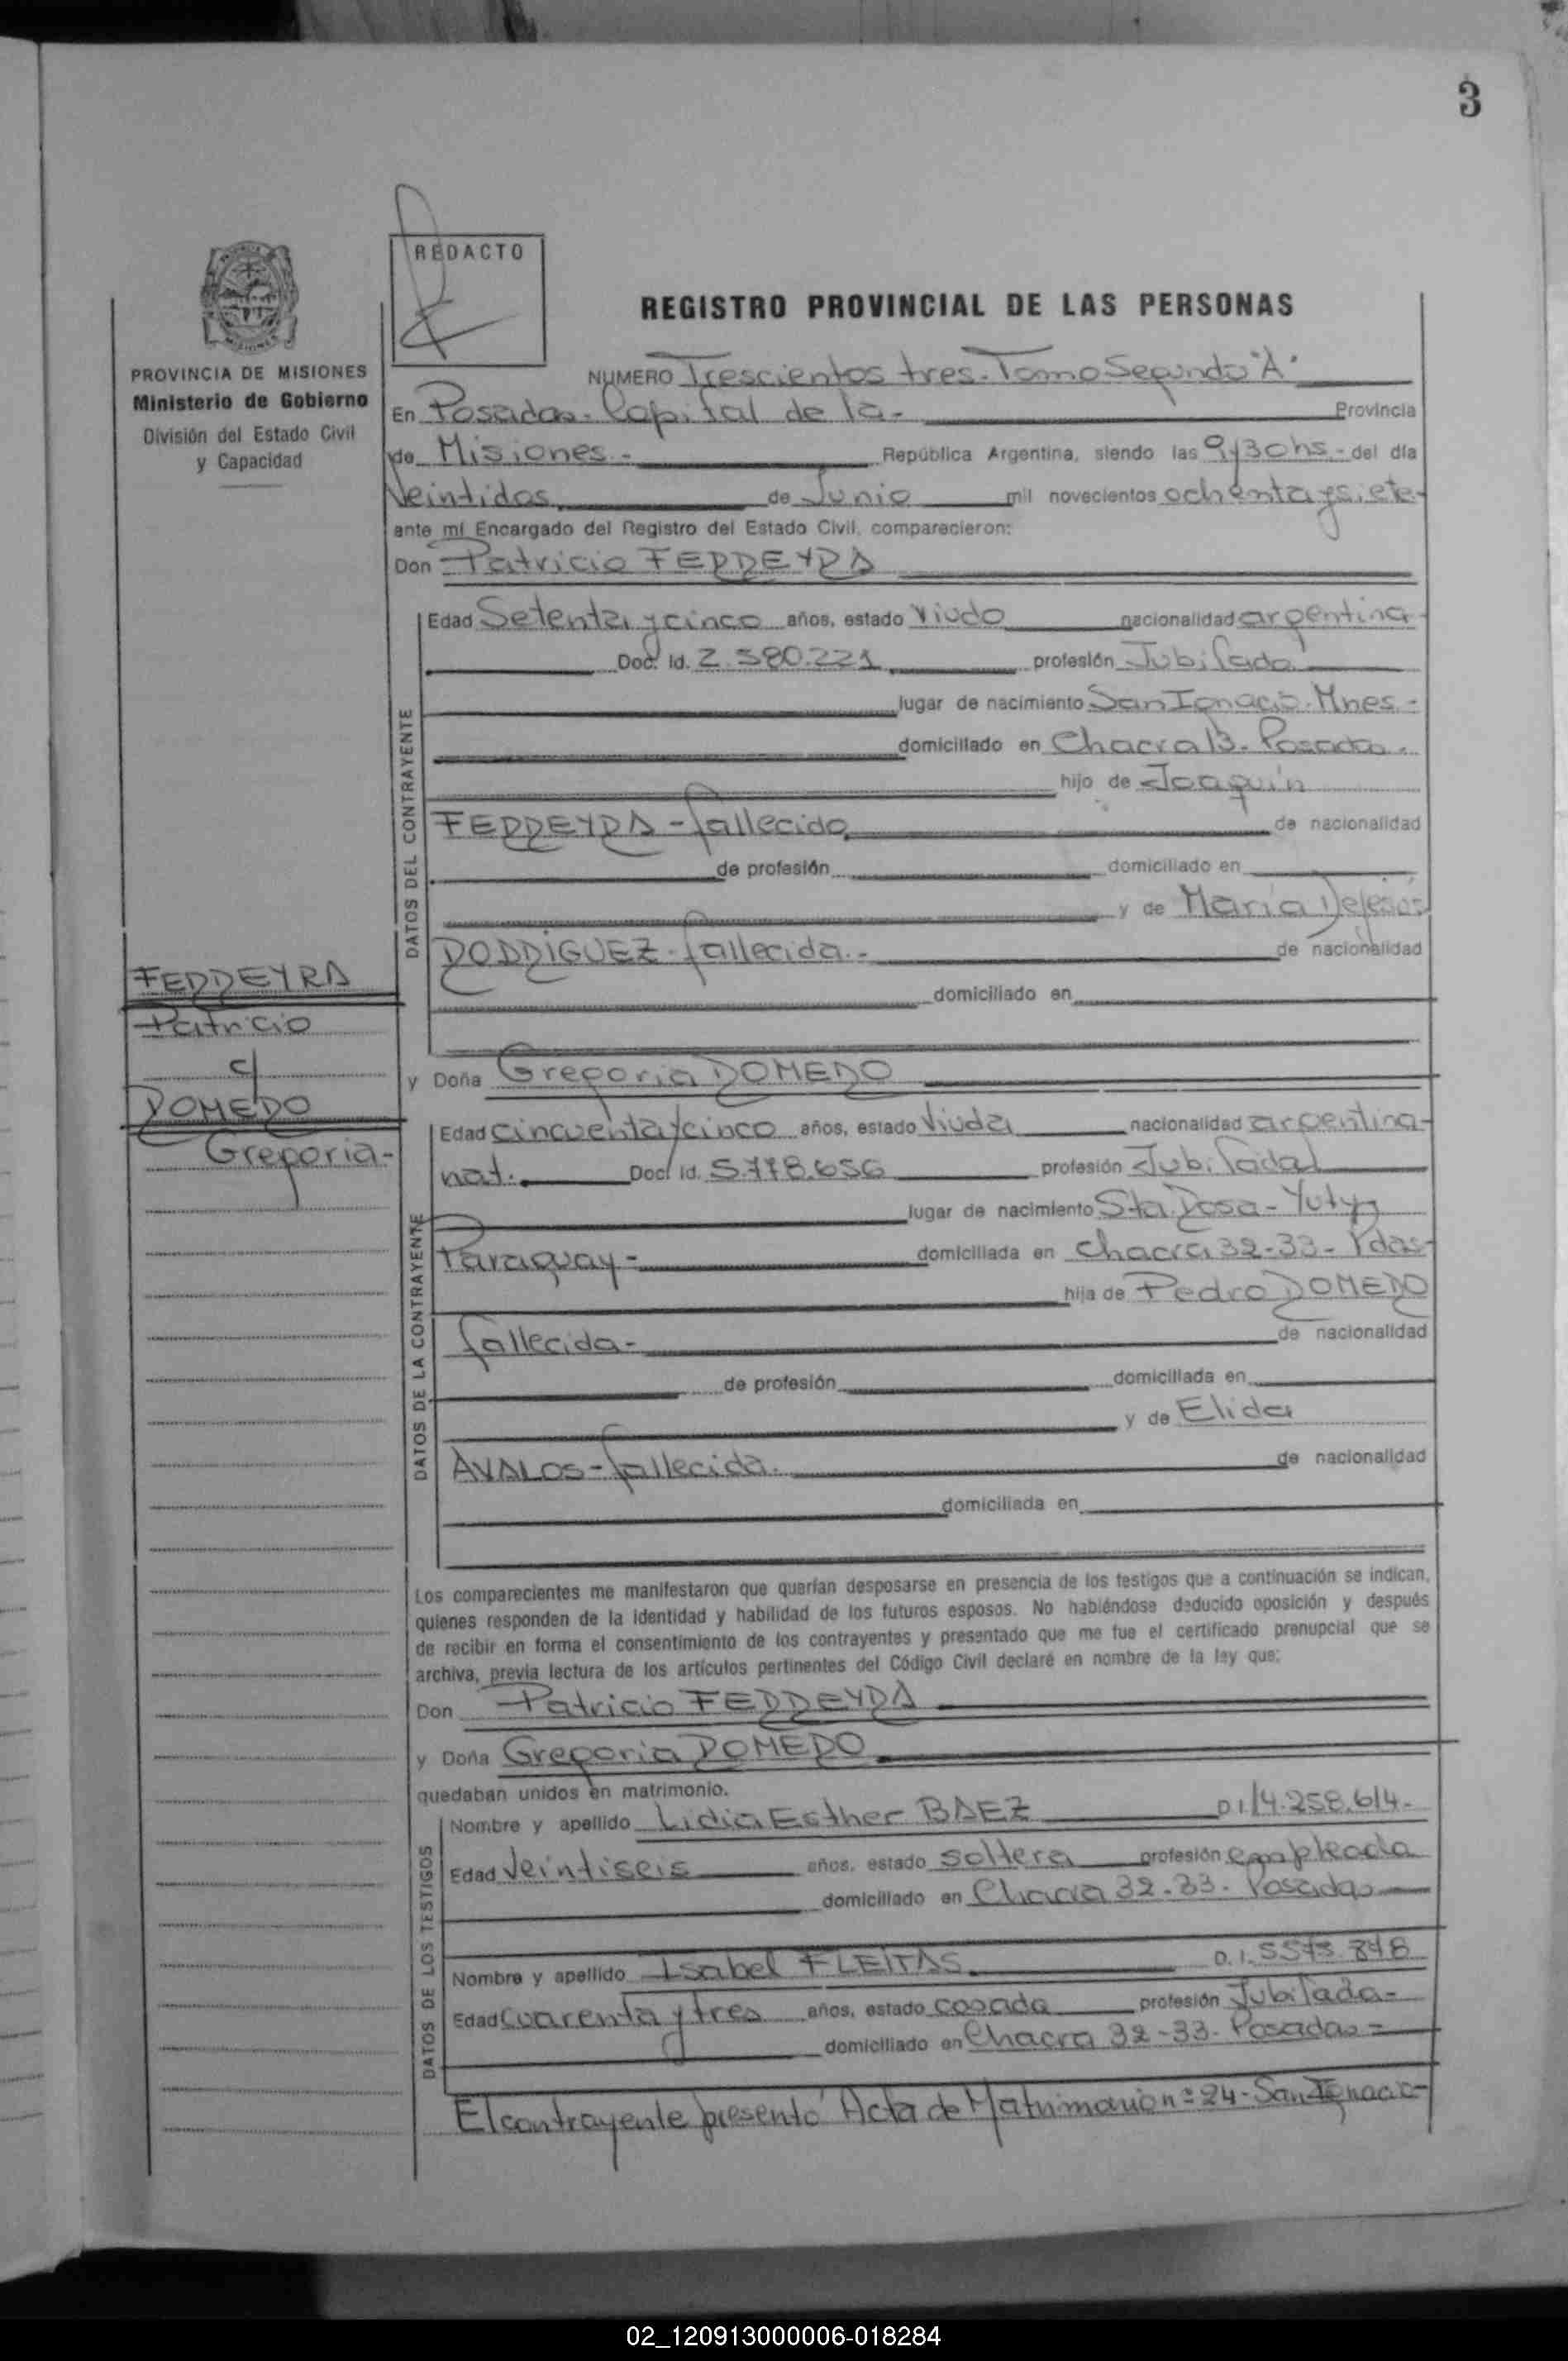 3
REDACTO
PROVINCIA DE MISIONES
Ministerio de Gobierno
División del Estado Civil
y Capacidad
REGISTRO PROVINCIAL DE LAS PERSONAS
NUMERO Trescientos tres. Tomo Segundo "A"
En Posadas. Capital de la - Provincia
de Misiones.- República Argentina, siendo las 9,30hs - del día
Veintidos de Junio mil novecientos ochenta y siete-
ante mí Encargado del Registro del Estado Civil, comparecieron:
Don Patricio FERREYRA
DATOS DEL CONTRAYENTE
Edad Setenta y cinco años, estado Viudo nacionalidad argentina-
Doc. Id. 2.580.221 profesión Jubilado
lugar de nacimiento San Ignacio. Mnes -
domiciliado en Chacra 13. Posadas.
hijo de Joaquín
FERREYRA - fallecido de nacionalidad
de profesión domiciliado en
y de María De Jesús
RODRIGUEZ - fallecida.- de nacionalidad
domiciliado en
FERREYRA
Patricio
c/
ROMERO
Gregoria-
y Doña Gregoria ROMERO
DATOS DE LA CONTRAYENTE
Edad cincuenta y cinco años, estado Viuda nacionalidad argentina-
nat. Doc. Id. 5.778.656 profesión Jubilada
lugar de nacimiento Sta. Rosa - Yuty
Paraguay - domiciliada en Chacra 32-33- Pdas-
hija de Pedro ROMERO
fallecida - de nacionalidad
de profesión domiciliada en
y de Elida
AVALOS - fallecida. de nacionalidad
domiciliada en
Los comparecientes me manifestaron que querían desposarse en presencia de los testigos que a continuación se indican,
quienes responden de la identidad y habilidad de los futuros esposos. No habiéndose deducido oposición y después
de recibir en forma el consentimiento de los contrayentes y presentado que me fue el certificado prenupcial que se
archiva, previa lectura de los artículos pertinentes del Código Civil declaré en nombre de la ley que:
Don Patricio FERREYRA
y Doña Gregoria ROMERO
quedaban unidos en matrimonio.
DATOS DE LOS TESTIGOS
Nombre y apellido Lidia Esther BAEZ D.I. 14.258.614.
Edad Veintiseis años, estado soltera profesión empleada
domiciliado en Chacra 32-33- Posadas
Nombre y apellido Isabel FLEITAS D.I. 5573.848
Edad Cuarenta y tres años, estado casada profesión Jubilada-
domiciliado en Chacra 32-33- Posadas -
El contrayente presentó Acta de Matrimonio nº 24- San Ignacio-
02_120913000006-018284